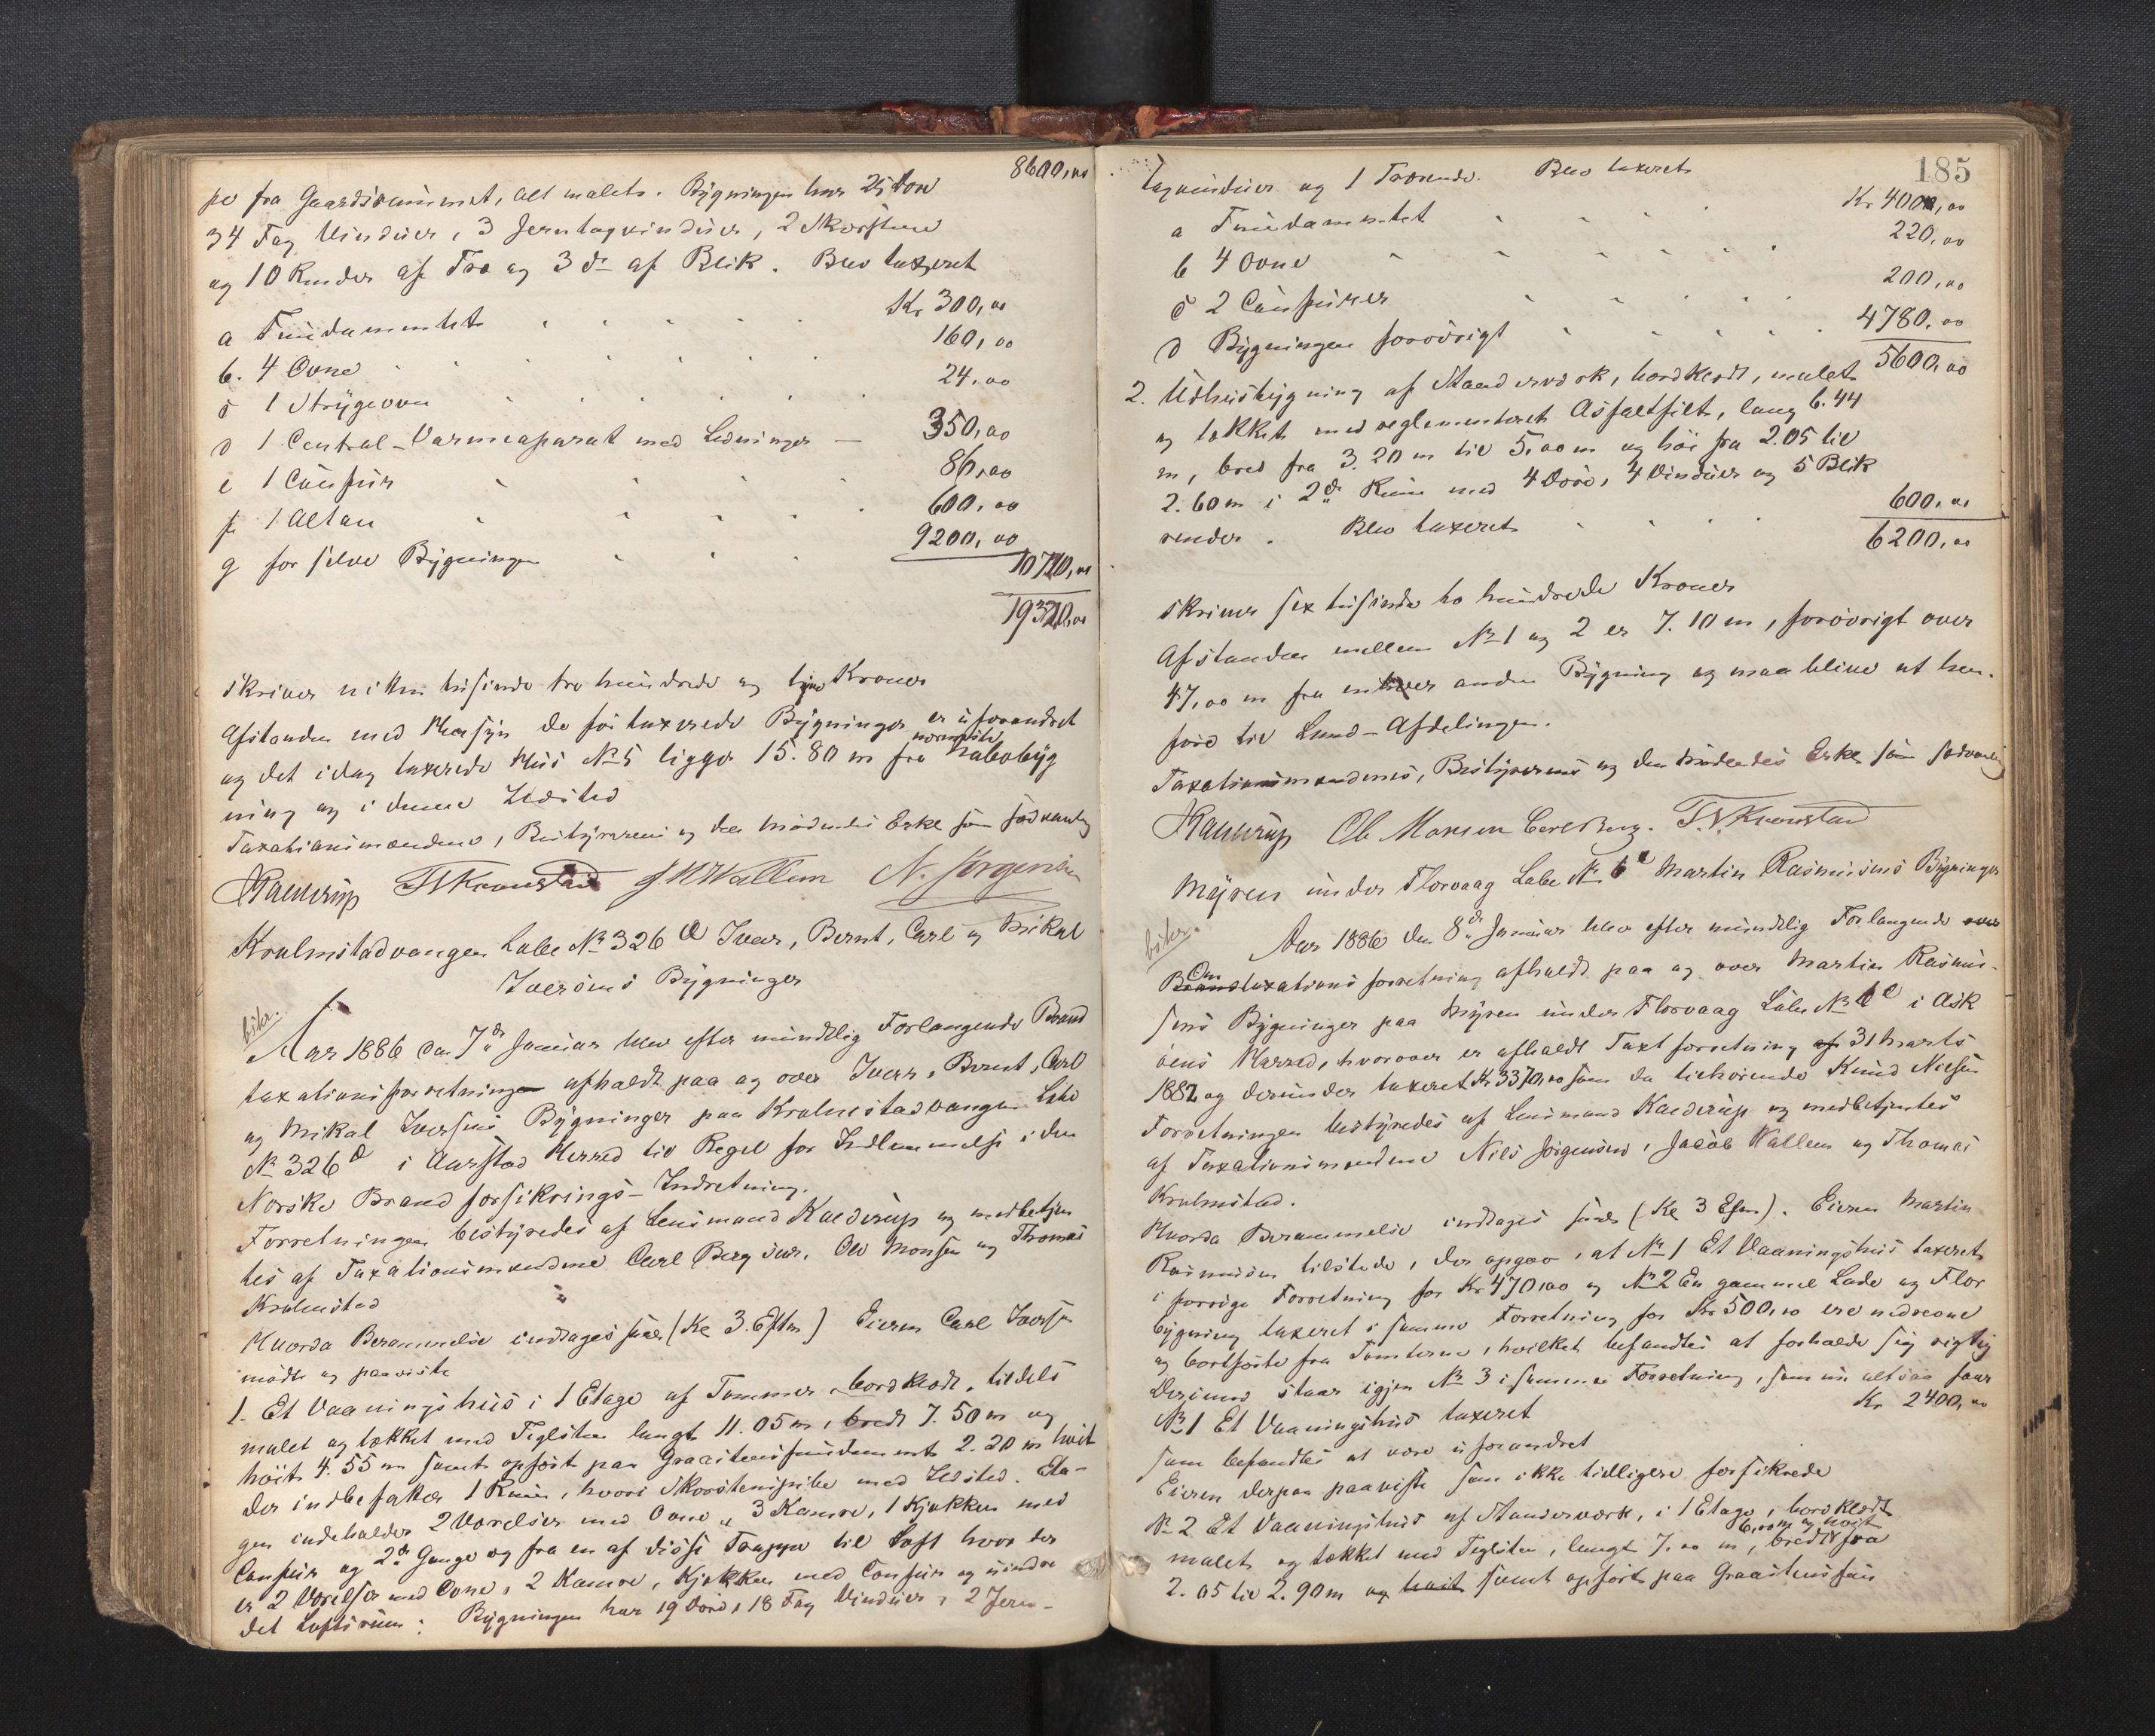 8600,00
pe fra Gaardsrummet, alt malet. Bygningen har 25 Døre
34 Fag Vinduer, 3 Jerntagvinduer, 2 Skorstene
og 10 Render af Træ og 3 do af Blik. Blev taxeret
a Fundamentet Kr 300,00
b. 4 Ovne 160,00
c 1 Strygeovn 24,00
d 1 Central-Varmeaparat med Ledninger — 350,00
e 1 Comfur 86,00
f 1 Altan 600,00
g for selve Bygningen 9200,00
10720,00
19320,00
skriver nitten tusinde tre hundrede og tyve Kroner
Afstanden med Hensyn de før taxerede Bygninger er uforandret
og det idag taxerede Hus No 5 ligger 15.80 m fra nærmeste Nabobyg
ning og i denne Ildsted
Taxationsmændene, Bestyrerens og den mødendes Eske som sædvanlig
Kaldrup T. Kronstad J. H. Wallem N. Jørgensen
Kralmstadvangen Løbe No 326 a Iver, Bernt, Carl og Mikal
Iversens Bygninger
bskr.
Aar 1886 den 7de Januar blev efter mundtlig Forlangende Brand
taxationsforretningen afholdt paa og over Iver, Bernt, Carl
og Mikal Iversens Bygninger paa Kralmstadvangen Løbe
No 326 a i Aarstad Herred til Regel for Indlemmelse i den
Norske Brandforsikrings-Indretning.
Forretningen bestyredes af Lensmand Kaldrup og medbetjen
tes af Taxationsmændene Carl Berg jun. Ole Monsen og Thomas
Kralmstad
Hvorda Berammelse indtages saa (Kl 3. Eftm) Eieren Carl Iversen
mødte og paaviste
1. Et Vaaningshus i 1 Etage af Tømmer, bordklædt, tildels
malet og tækket med Teglsten langt 11.05 m, bredt 7.50 m og
høit 4.55 m samt opført paa Graastensfundament 2.20 m høit
der indbefatter 1 Rum, hvori Skorstenspibe med Ildsted. Eta-
gen indeholder 2 Værelser med Ovne, 3 Kamre, 1 Kjøkken med
Comfur og 2de Gange og fra en af disse Trappe til Loft hvor der
er 2 Værelser med Ovne, 2 Kamre, Kjøkken med Comfur og mindre
det Loftsrum: Bygningen har 19 Døre, 18 Fag Vinduer, 2 Jern-
185
tagvinduer og 1 Trærende. Blev taxeret
a Fundamentet Kr 400,00
b 4 Ovne 220,00
c 2 Comfurer 200,00
d Bygningen forøvrigt 4780,00
5600,00
2. Udhusbygning af Staenderværk, bordklædt, malet
og tækket med reglementeret Asfaltfilt, lang 6.44
m, bred fra 3.20 m til 5,00 m og høi fra 2.05 til
2.60 m i 2de Rum med 4 Døre, 4 Vinduer og 5 Blik
render. Blev taxeret 600,00
6200,00
skriver sex tusinde to hundrede Kroner
Afstanden mellem No 1 og 2 er 7.10 m, forøvrigt over
47,00 m fra enhver anden Bygning og maa blive at hen-
føre til Land-Afdelingen.
Taxationsmændenes, Bestyrerens og den mødendes Eske som sædvanlig
Kaldrup Ole Monsen Carl Berg. T. Kronstad
Myren under Florvaag Løbe No 6 e Martin Rasmusens Bygninger
bskr.
Aar 1886 den 8de Januar blev efter mundtlig Forlangende over
Om
Brandtaxationsforretning afholdt paa og over Martin Rasmu-
sens Bygninger paa Myren under Florvaag Løbe No 6 e i Ask
øens Herred, hvorover er afholdt Taxtforretning af 31 Marts
1882 og derunder taxeret Kr 3370,00 som da tilhørende Knud Nielsen
Forretningen bestyredes af Lensmand Kaldrup og medbetjentes
af Taxationsmændene Nils Jørgensen, Jacob Wallem og Thomas
Kralmstad.
Hvorda Berammelse indtages saa (Kl 3 Efm). Eieren Martin
Rasmusen tilstede, der opgav, at No 1 Et Vaaningshus taxeret
i forrige Forretning for Kr 470,00 og No 2 En gammel Lade og Flor
bygning taxeret i samme Forretning for Kr 500,00 ere nedrevne
og bortførte fra Tomterne, hvilket befandtes at forholde sig rigtig
Derimod staar igjen No 3 i samme Forretning, som nu altsaa faar
No 1 Et Vaaningshus taxeret Kr 2400,00
som befandtes at være uforandret
Eieren derpaa paaviste som ikke tidligere forsikrede
No 2 Et Vaaningshus af Standerværk, i 1 Etage, bordklædt
malet og tækket med Teglsten, langt 7.00 m, bredt 6,00 m og høit fra
2.05 til 2.90 m og høit samt opført paa Graastensfun